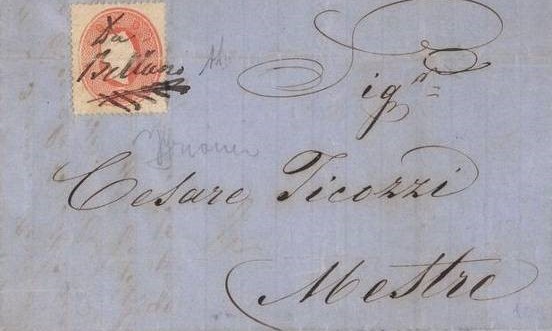 Da
Belluno
Sig.r
Cesare Ticozzi
Mestre